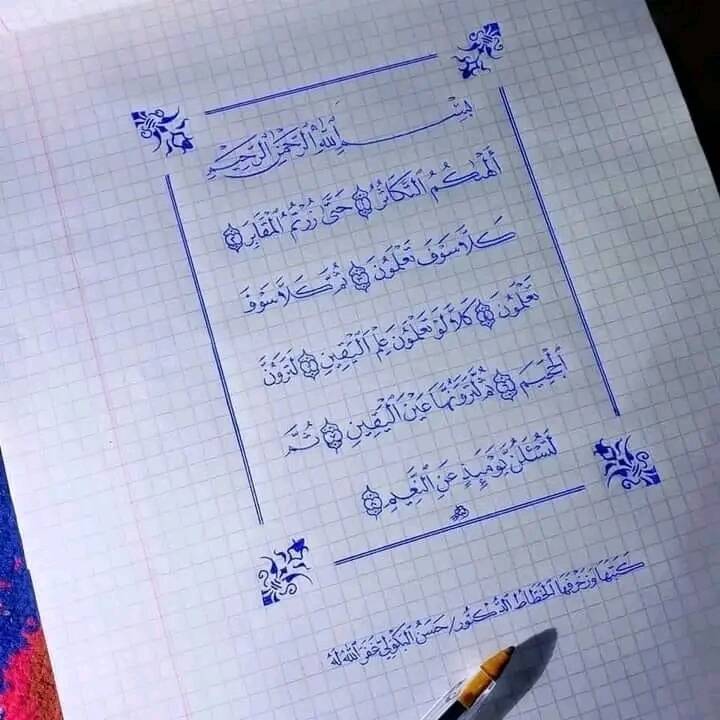 بِسْمِ ٱللَّهِ ٱلرَّحْمَٰنِ ٱلرَّحِيمِ
أَلْهَىٰكُمُ ٱلتَّكَاثُرُ ١ حَتَّىٰ زُرْتُمُ ٱلْمَقَابِرَ ٢
كَلَّا سَوْفَ تَعْلَمُونَ ٣ ثُمَّ كَلَّا سَوْفَ
تَعْلَمُونَ ٤ كَلَّا لَوْ تَعْلَمُونَ عِلْمَ ٱلْيَقِينِ ٥ لَتَرَوُنَّ
ٱلْجَحِيمَ ٦ ثُمَّ لَتَرَوُنَّهَا عَيْنَ ٱلْيَقِينِ ٧ ثُمَّ
لَتُسْـَٔلُنَّ يَوْمَئِذٍ عَنِ ٱلنَّعِيمِ ٨
كَتَبَهَا وَزَخْرَفَهَا الْخَطَّاطُ الدُّكْتُور/ حَسَنُ الْبَكُولِي غَفَرَ اللَّهُ لَهُ